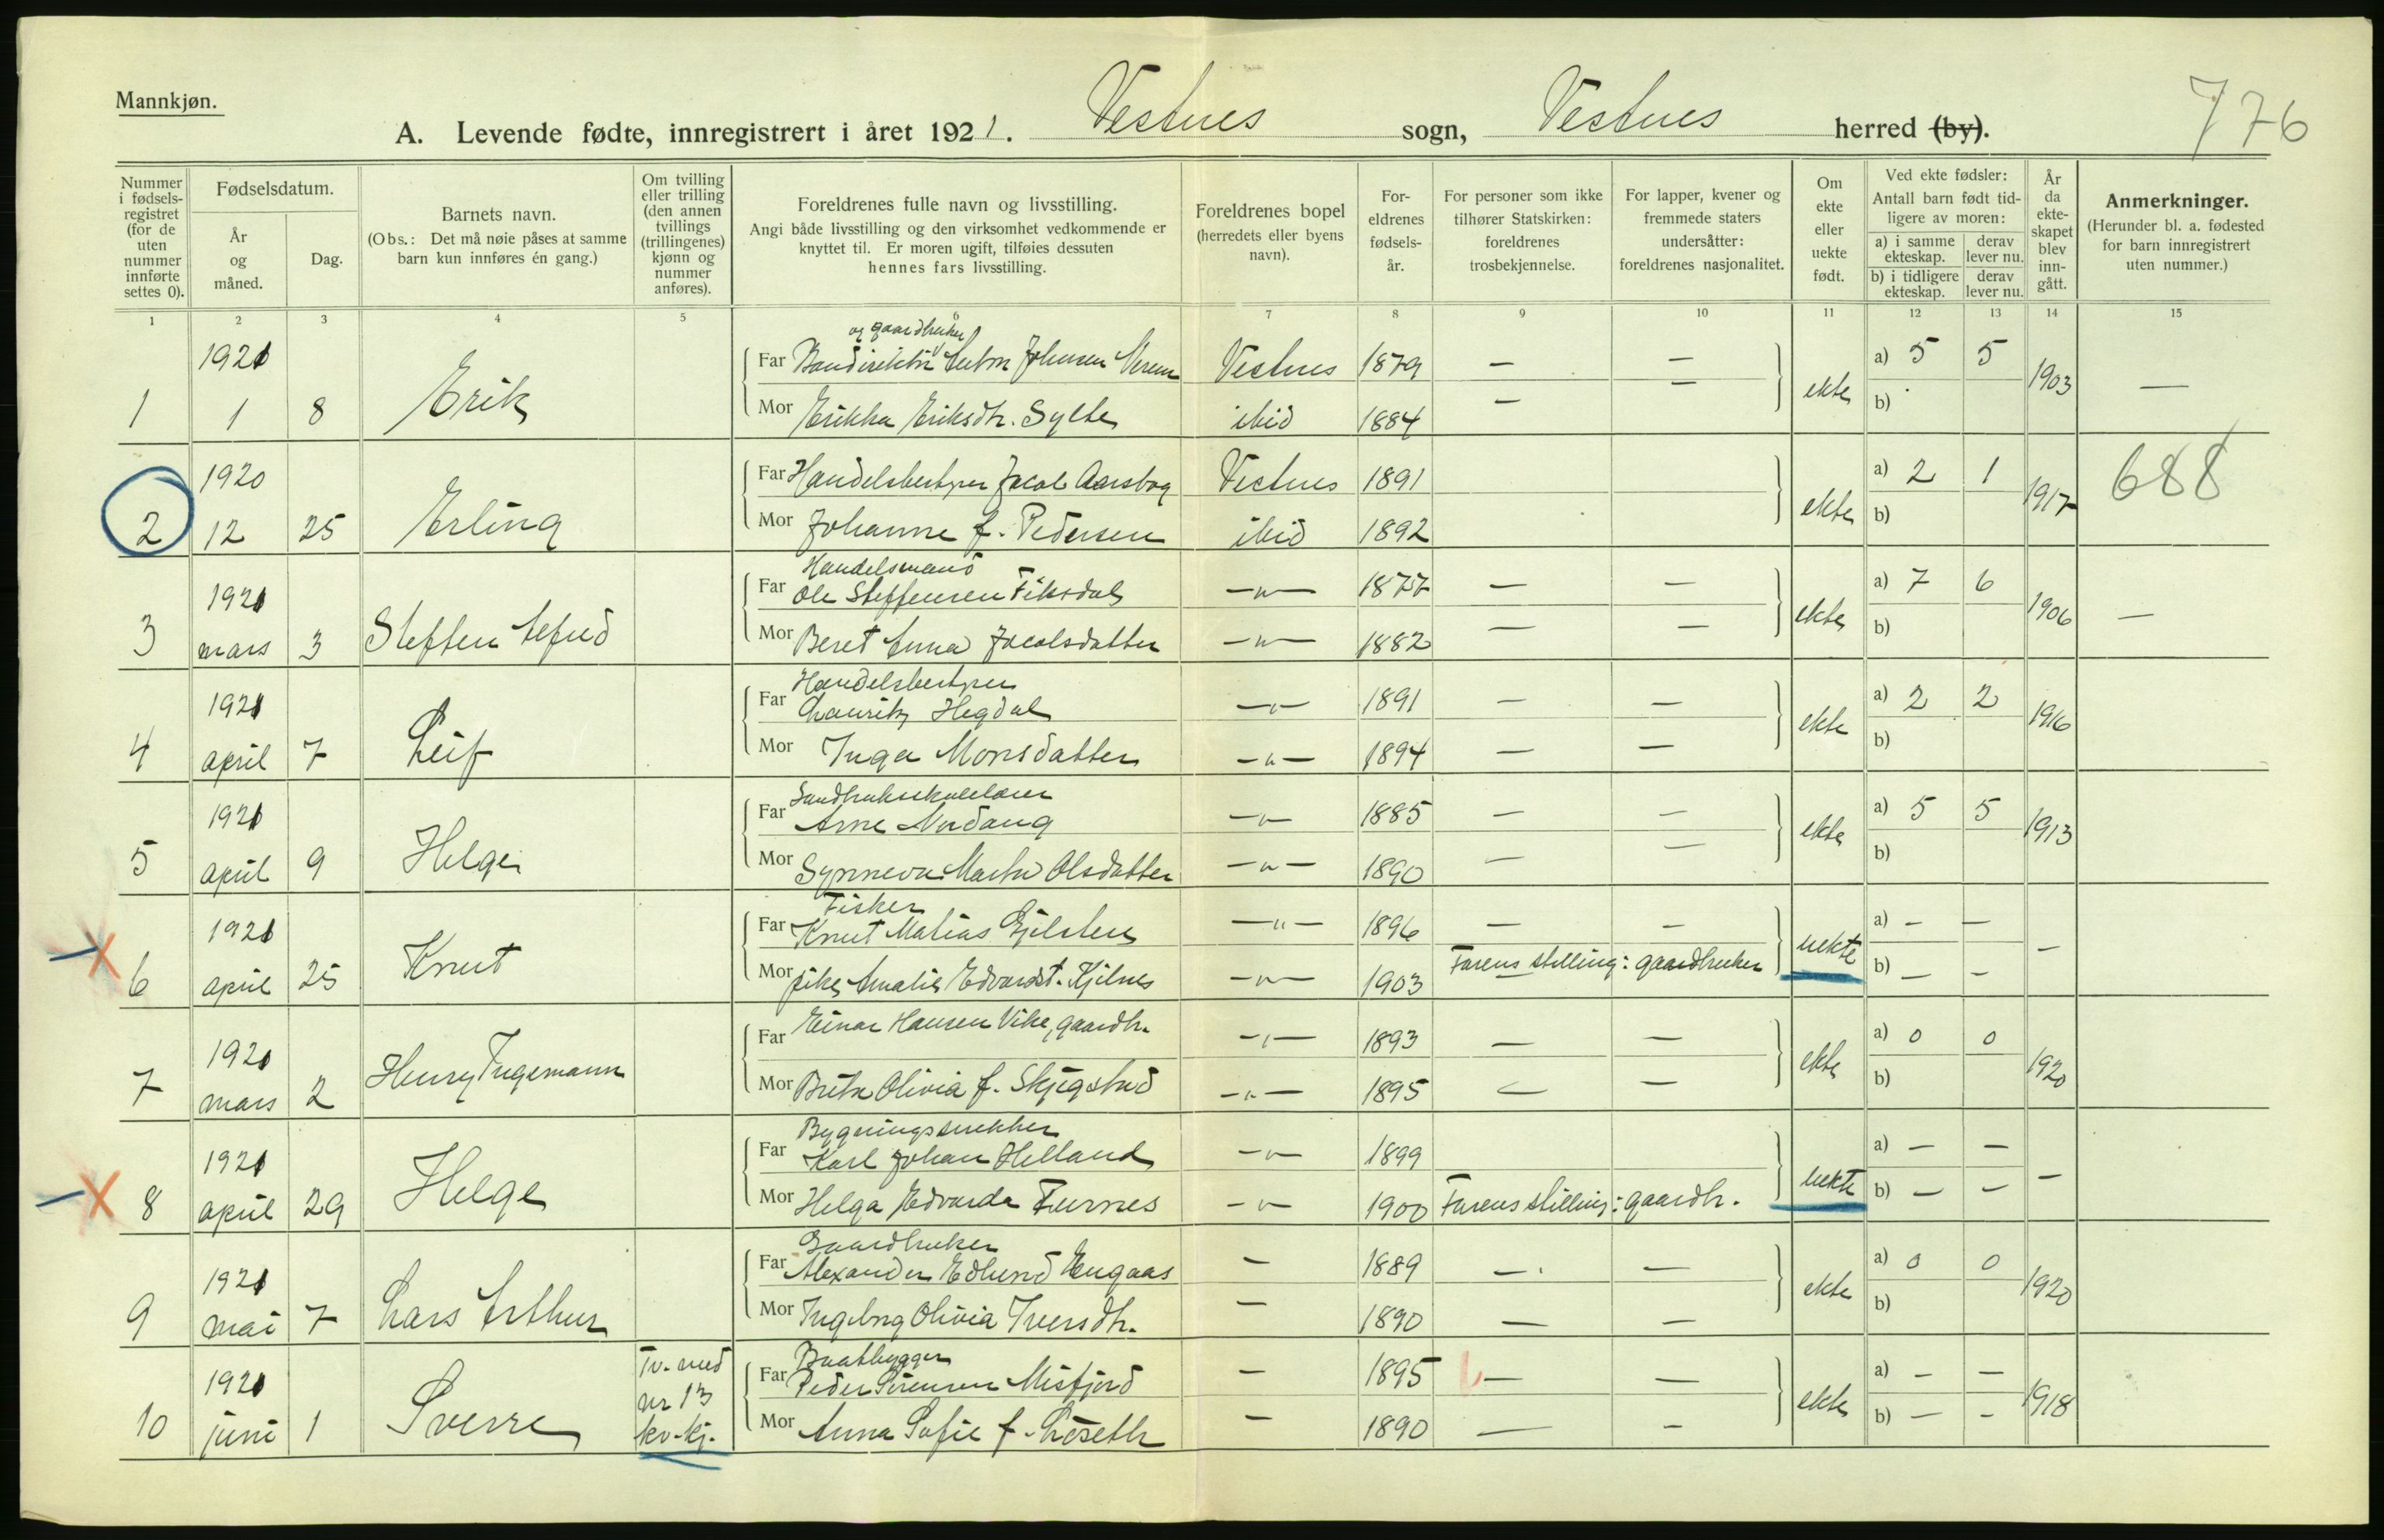 Mannkjøn.
776
A. Levende fødte, innregistrert i året 1921. Vestnes sogn, Vestnes herred (by).
Nummer i fødsels-registret (for de uten nummer innførte settes 0).
Fødselsdatum.
År og måned.
Dag.
Barnets navn.
(Obs.: Det må nøie påses at samme barn kun innføres én gang.)
Om tvilling eller trilling (den annen tvillings (trillingenes) kjønn og nummer anføres).
Foreldrenes fulle navn og livsstilling.
Angi både livsstilling og den virksomhet vedkommende er knyttet til. Er moren ugift, tilføies dessuten hennes fars livsstilling.
Foreldrenes bopel (herredets eller byens navn).
For-eldrenes fødsels-år.
For personer som ikke tilhører Statskirken: foreldrenes trosbekjennelse.
For lapper, kvener og fremmede staters undersåtter: foreldrenes nasjonalitet.
Om ekte eller uekte født.
Ved ekte fødsler: Antall barn født tid-ligere av moren:
a) i samme ekteskap. derav lever nu.
b) i tidligere ekteskap. derav lever nu.
År da ekte-skapet blev inn-gått.
Anmerkninger.
(Herunder bl. a. fødested for barn innregistrert uten nummer.)
1 2 3 4 5 6 7 8 9 10 11 12 13 14 15
og gaardbruker
1921 Far Johnsen Vestnes 1879 — — a) 5 5
1 1 8 Erik Mor Erikka Eriksdtr. Sylte ibid 1884 — — ekte b) 1903 —
1920 Far Handelsbestyrer Jacob Aarsbog Vestnes 1891 a) 2 1 688
2 12 25 Erling Mor Johanne f. Pedersen ibid 1892 ekte b) 1917
Handelsmand
1921 Far Ole Steffensen Fiksdal —"— 1877 — — a) 7 6
3 mars 3 Steffen Mor Beret Anna Jacobsdatter —"— 1882 — — ekte b) 1906 —
Handelsbestyrer
1921 Far Lauritz Hegdal —"— 1891 — — a) 2 2
4 april 7 Leif Mor Inga Monsdatter —"— 1894 — — ekte b) 1916
Landbruksskolelærer
1921 Far Arne —"— 1885 — — a) 5 5
5 april 9 Helge Mor Synneva Marta Olsdatter —"— 1890 — — ekte b) 1913
Fisker
1921 Far Knut Matias Gjelsten —"— 1896 — — a) — —
6 april 25 Knut Mor pike Amalie Edvardst. Kjelnes —"— 1903 Farens stilling: gaardbruker uekte b) — — —
1921 Far Einar Hansen Vike, gaardbr. —"— 1893 — — a) 0 0
7 mars 2 Henry Ingemann Mor Brita Olivia f. Skjegstad —"— 1895 — — ekte b) 1920
Bygningssnekker
1921 Far Karl Johan Helland —"— 1899 a) — —
8 april 29 Helge Mor Helga Edvarda Furnes —"— 1900 Farens stilling: gaardbr. uekte b) — — —
Gaardbruker
1921 Far Alexander Edlund Engaas — 1889 — — a) 0 0
9 mai 7 Lars Arthur Mor Ingebrg Olivia Iversdtr. — 1890 — — ekte b) 1920
Baatbygger
1921 Tv. med Far Peder Sørensen Misfjord — 1895 — — a) — —
10 juni 1 Sverre nr 13 kv.kj. Mor Anna Sofie f. Løseth — 1890 — — ekte b) — — 1918